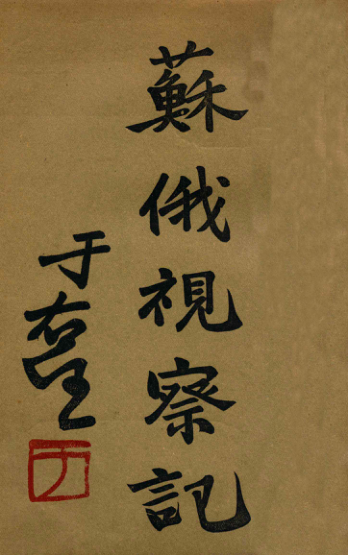 蘇俄視察記
于右任